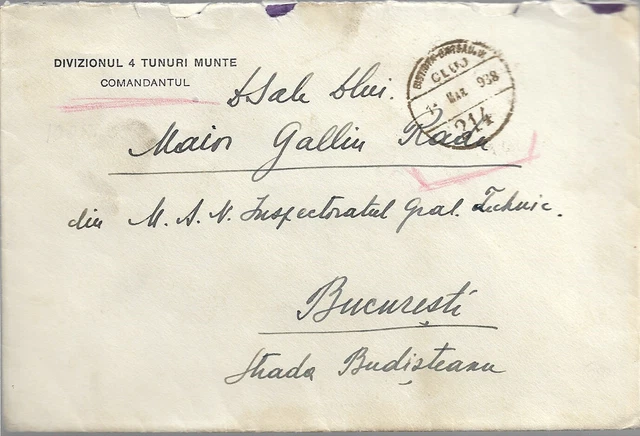 DIVIZIONUL 4 TUNURI MUNTE
COMANDANTUL
CLUJ
MAR 938
214
D Sale Dlui.
Maior Gallin Radu
din M. A. N. Inspectoratul Gral. Tehnic.
București
Strada Budișteanu